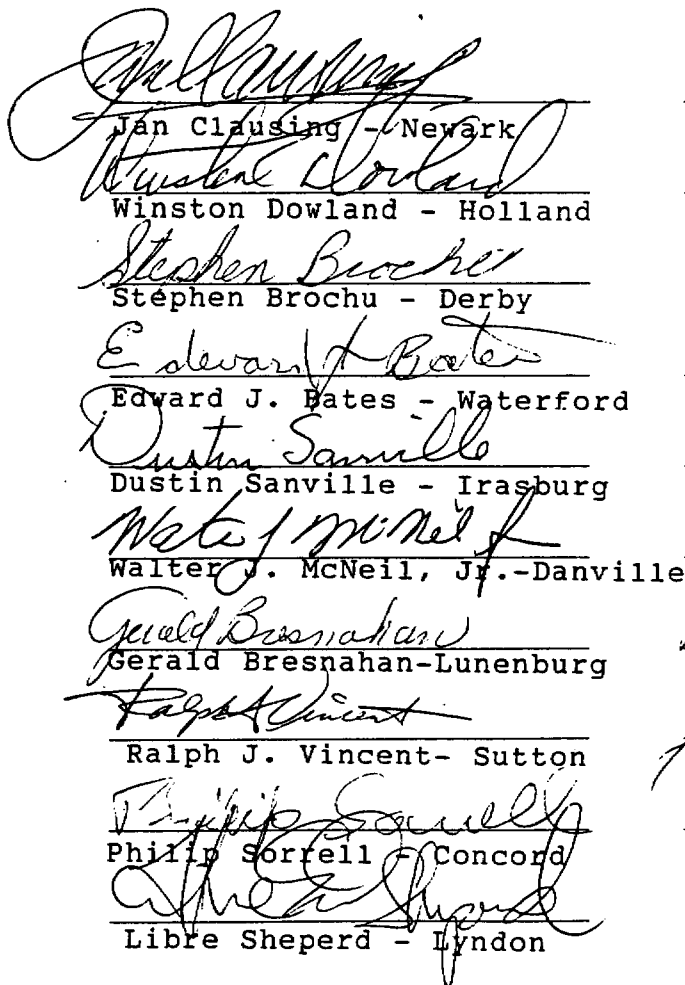 Jan Clausing
Jan Clausing - Newark
Winston Dowland
Winston Dowland - Holland
Stephen Brochu
Stephen Brochu - Derby
Edward J Bates
Edward J. Bates - Waterford
Dustin Sanville
Dustin Sanville - Irasburg
Walter J McNeil Jr
Walter J. McNeil, Jr.-Danville
Gerald Bresnahan
Gerald Bresnahan-Lunenburg
Ralph J Vincent
Ralph J. Vincent- Sutton
Philip Sorrell
Philip Sorrell - Concord
Libre Sheperd - Lyndon